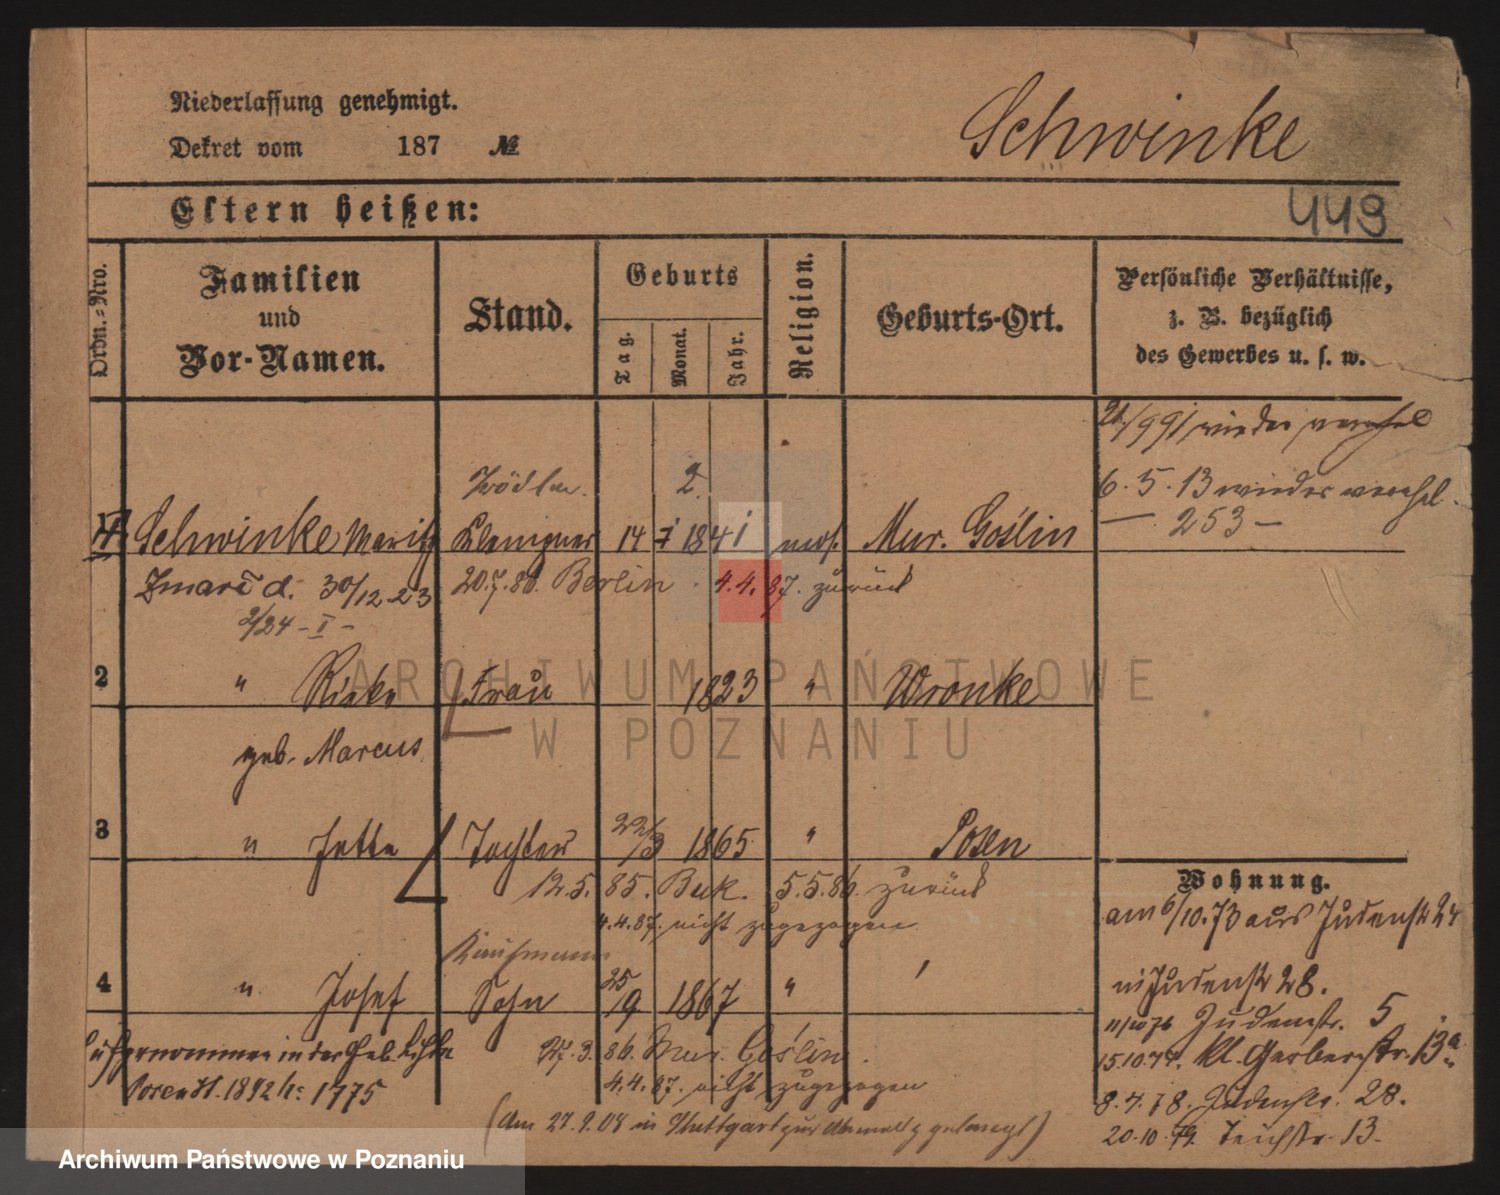 Niederlassung genehmigt.
Dekret vom 187 №
Schwinke
Eltern heißen:
449
Ordn.-Nro.
Familien
und
Vor-Namen.
Stand.
Geburts
Tag.
Monat.
Jahr.
Religion.
Geburts-Ort.
Persönliche Verhältnisse,
z. B. bezüglich
des Gewerbes u. s. w.
6.5.13 wieder
— 253 —
Trödler. 2.
Schwinke Moritz Klempner 14 1841 mos. Mur. Goślin
d. 30/12 23 20.7.86. Berlin. 4.4.87. zurück
2/24 - I -
2 " Rieke Frau 1823 " Wronke
geb. Marcus
3 " Jette Tochter 22/3 1865 " Posen
12.5.85. Buk. 5.5.86. zurück
4.4.87. nicht zugezogen
Kaufmann
4 " Josef Sohn 25/9 1867 " '
Aufgenommen in der Geb. Liste
Posen St. 1892 No 1775
27.3.86. Mur. Goślin.
4.4.87. nicht zugezogen
(Am 27.9.04 in Stuttgart zur gelangt)
Wohnung.
am 6/10.73 aus Judenstr 24
n Judenstr 28.
11/10 76 Judenstr. 5
15.10.77. Kl. Gerberstr. 13a
8.4.78. Judenstr. 28.
20.10.79. Teichstr. 13.
ARCHIWUM PAŃSTWOWE
W POZNANIU
Archiwum Państwowe w Poznaniu